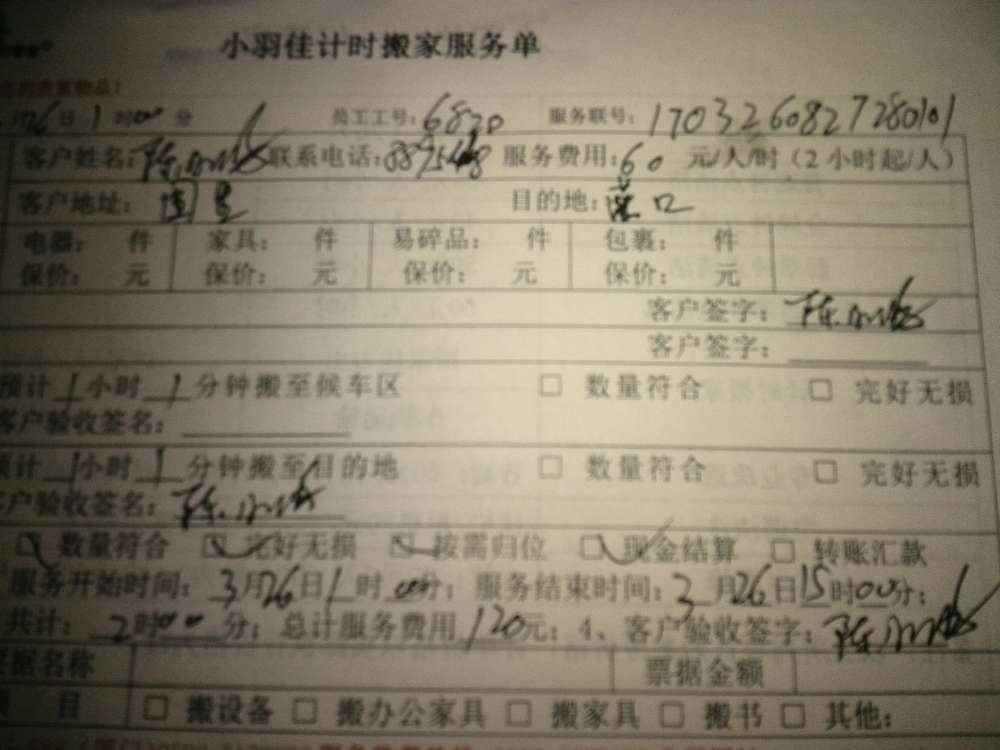 小羽佳计时搬家服务单
的贵重物品！
月26日1时00分 员工工号：6820 服务联号：1703260827280101
客户姓名：陈 联系电话： 服务费用：60元/人/时（2小时起/人）
客户地址： 目的地：口
电器： 件 家具： 件 易碎品： 件 包裹： 件
保价： 元 保价： 元 保价： 元 保价： 元
客户签字：陈
客户签字：
预计 小时 分钟搬至候车区 □ 数量符合 □ 完好无损
客户验收签名：
预计 小时 分钟搬至目的地 □ 数量符合 □ 完好无损
客户验收签名：陈
☑ 数量符合 ☑ 完好无损 ☑ 按需归位 ☑ 现金结算 □ 转账汇款
服务开始时间：3月26日1时00分；服务结束时间：3月26日15时00分；
共计：2时00分；总计服务费用120元；4、客户验收签字：陈
票据名称 票据金额
项 目 □ 搬设备 □ 搬办公家具 □ 搬家具 □ 搬书 □ 其他：